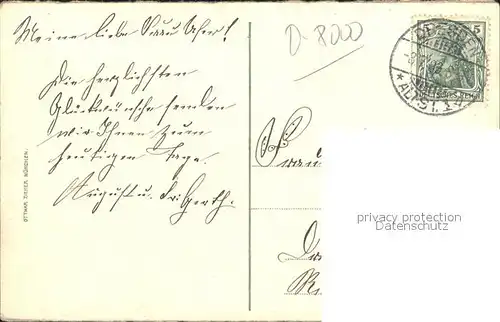 Meine liebe Frau User!
Die herzlichsten
Glückwünsche senden
wir Ihnen zum
heutigen Tage
August u. Fr. Gerth.
D-8000
OTTMAR ZIEHER, MÜNCHEN.
5
Frau
privacy protection
Datenschutz